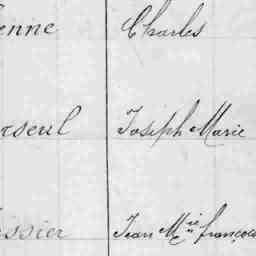 enne Charles
rseul Joseph Marie
ssier Jean Mie françois